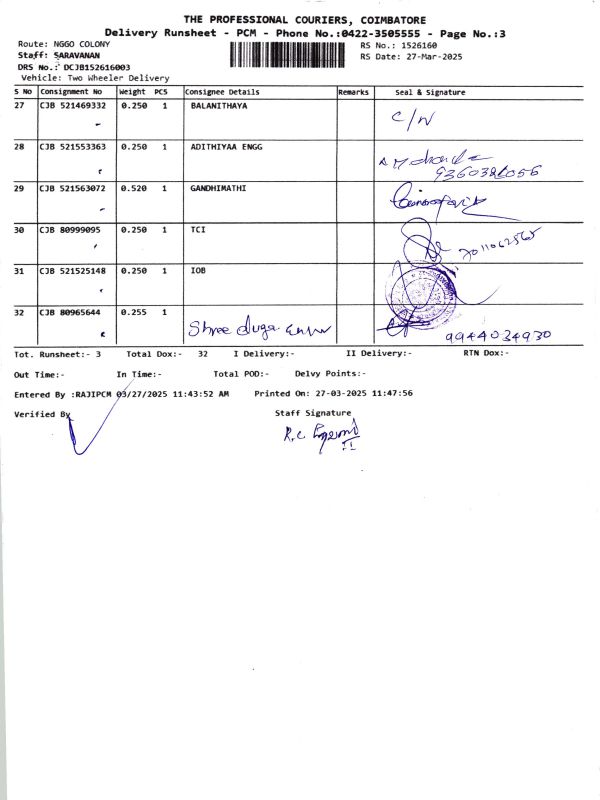 THE PROFESSIONAL COURIERS, COIMBATORE
Delivery Runsheet - PCM - Phone No.:0422-3505555 - Page No.:3
Route: NGGO COLONY RS No.: 1526160
Staff: SARAVANAN RS Date: 27-Mar-2025
DRS No.: DCJB152616003
Vehicle: Two Wheeler Delivery
S No Consignment No Weight PCS Consignee Details Remarks Seal & Signature
27 CJB 521469332 0.250 1 BALANITHAYA C/N
28 CJB 521553363 0.250 1 ADITHIYAA ENGG
29 CJB 521563072 0.520 1 GANDHIMATHI
30 CJB 80999095 0.250 1 TCI
31 CJB 521525148 0.250 1 IOB
32 CJB 80965644 0.255 1 Shree 9944034930
Tot. Runsheet:- 3 Total Dox:- 32 I Delivery:- II Delivery:- RTN Dox:-
Out Time:- In Time:- Total POD:- Delvy Points:-
Entered By :RAJIPCM 03/27/2025 11:43:52 AM Printed On: 27-03-2025 11:47:56
Verified By Staff Signature